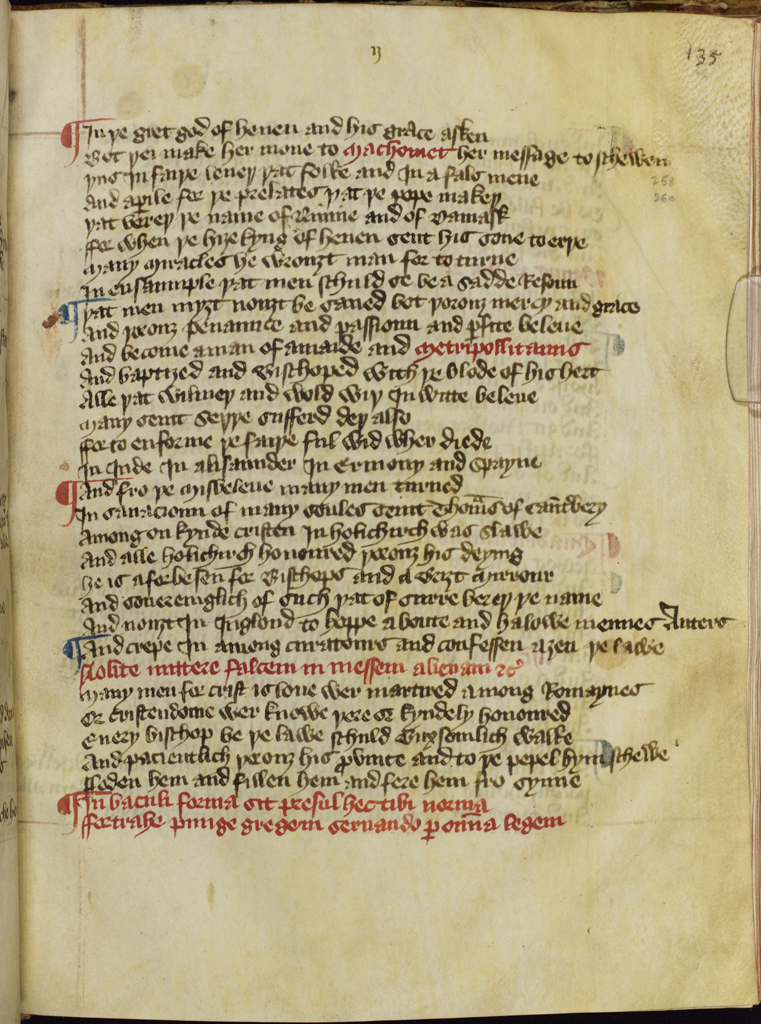 135
¶ In ye gret god of heuen and his grace asken
Bot yei make her mone to Machomet her message to schewen
yus In faiye leuey yat folke and In a fals mene
And aprile for ye prelates yat ye pope makey
yat berey ye name of Neuiue and of Damask
ffor when ye hize kyng of heuen sent his sone to erye
Many myracles he wrouzt man for to turne
In ensaumple yat men schuld se be a sadde Resoun
¶ yat men myzt nouzt be saued bot yorouz mercy and grace
And yorouz penaunce and passioun and pfite beleue
And become a man of a maide and Metripollitanus
And baptized and Bischoped with ye blode of his hert
Alle yat wilney and wold wiy In witte beleue
Many seint seyye sufferd dey also
ffor to enforme ye faiye ful wid wher diede
In Inde In alisaunder In Ermony and Spayne
¶ And fro ye misbeleue many men turned
In sauacioun of many soules seint Thomas of Cantbery
Among on kynde cristen In holichirch was slawe
And alle holichirch honoured yorouz his deying
he is a forbesen for Bischops and a brizt Myrrour
And souereniglich of such yat of surre berey ye name
And nouzt In Inglond to hoppe aboute and halowe mennes Auters
¶ And crepe In among curatours and confessen azen ye lawe
Nolite mittere falcem in messem alienam &c
Many men for crist is loue wer martired among Romaynes
Or Cristendome wer knowe yere or kyndely honoured
Euery bischop be ye lawe schuld Buxsomlich walke
And pacientlich yorouz his prouince and to ye pepel hym schewe
ffeden hem and fullen hem and fere hem fro synne
¶ In baculi forma sit presul hec tibi norma
ffer trahe punge gregem seruando p omnia legem